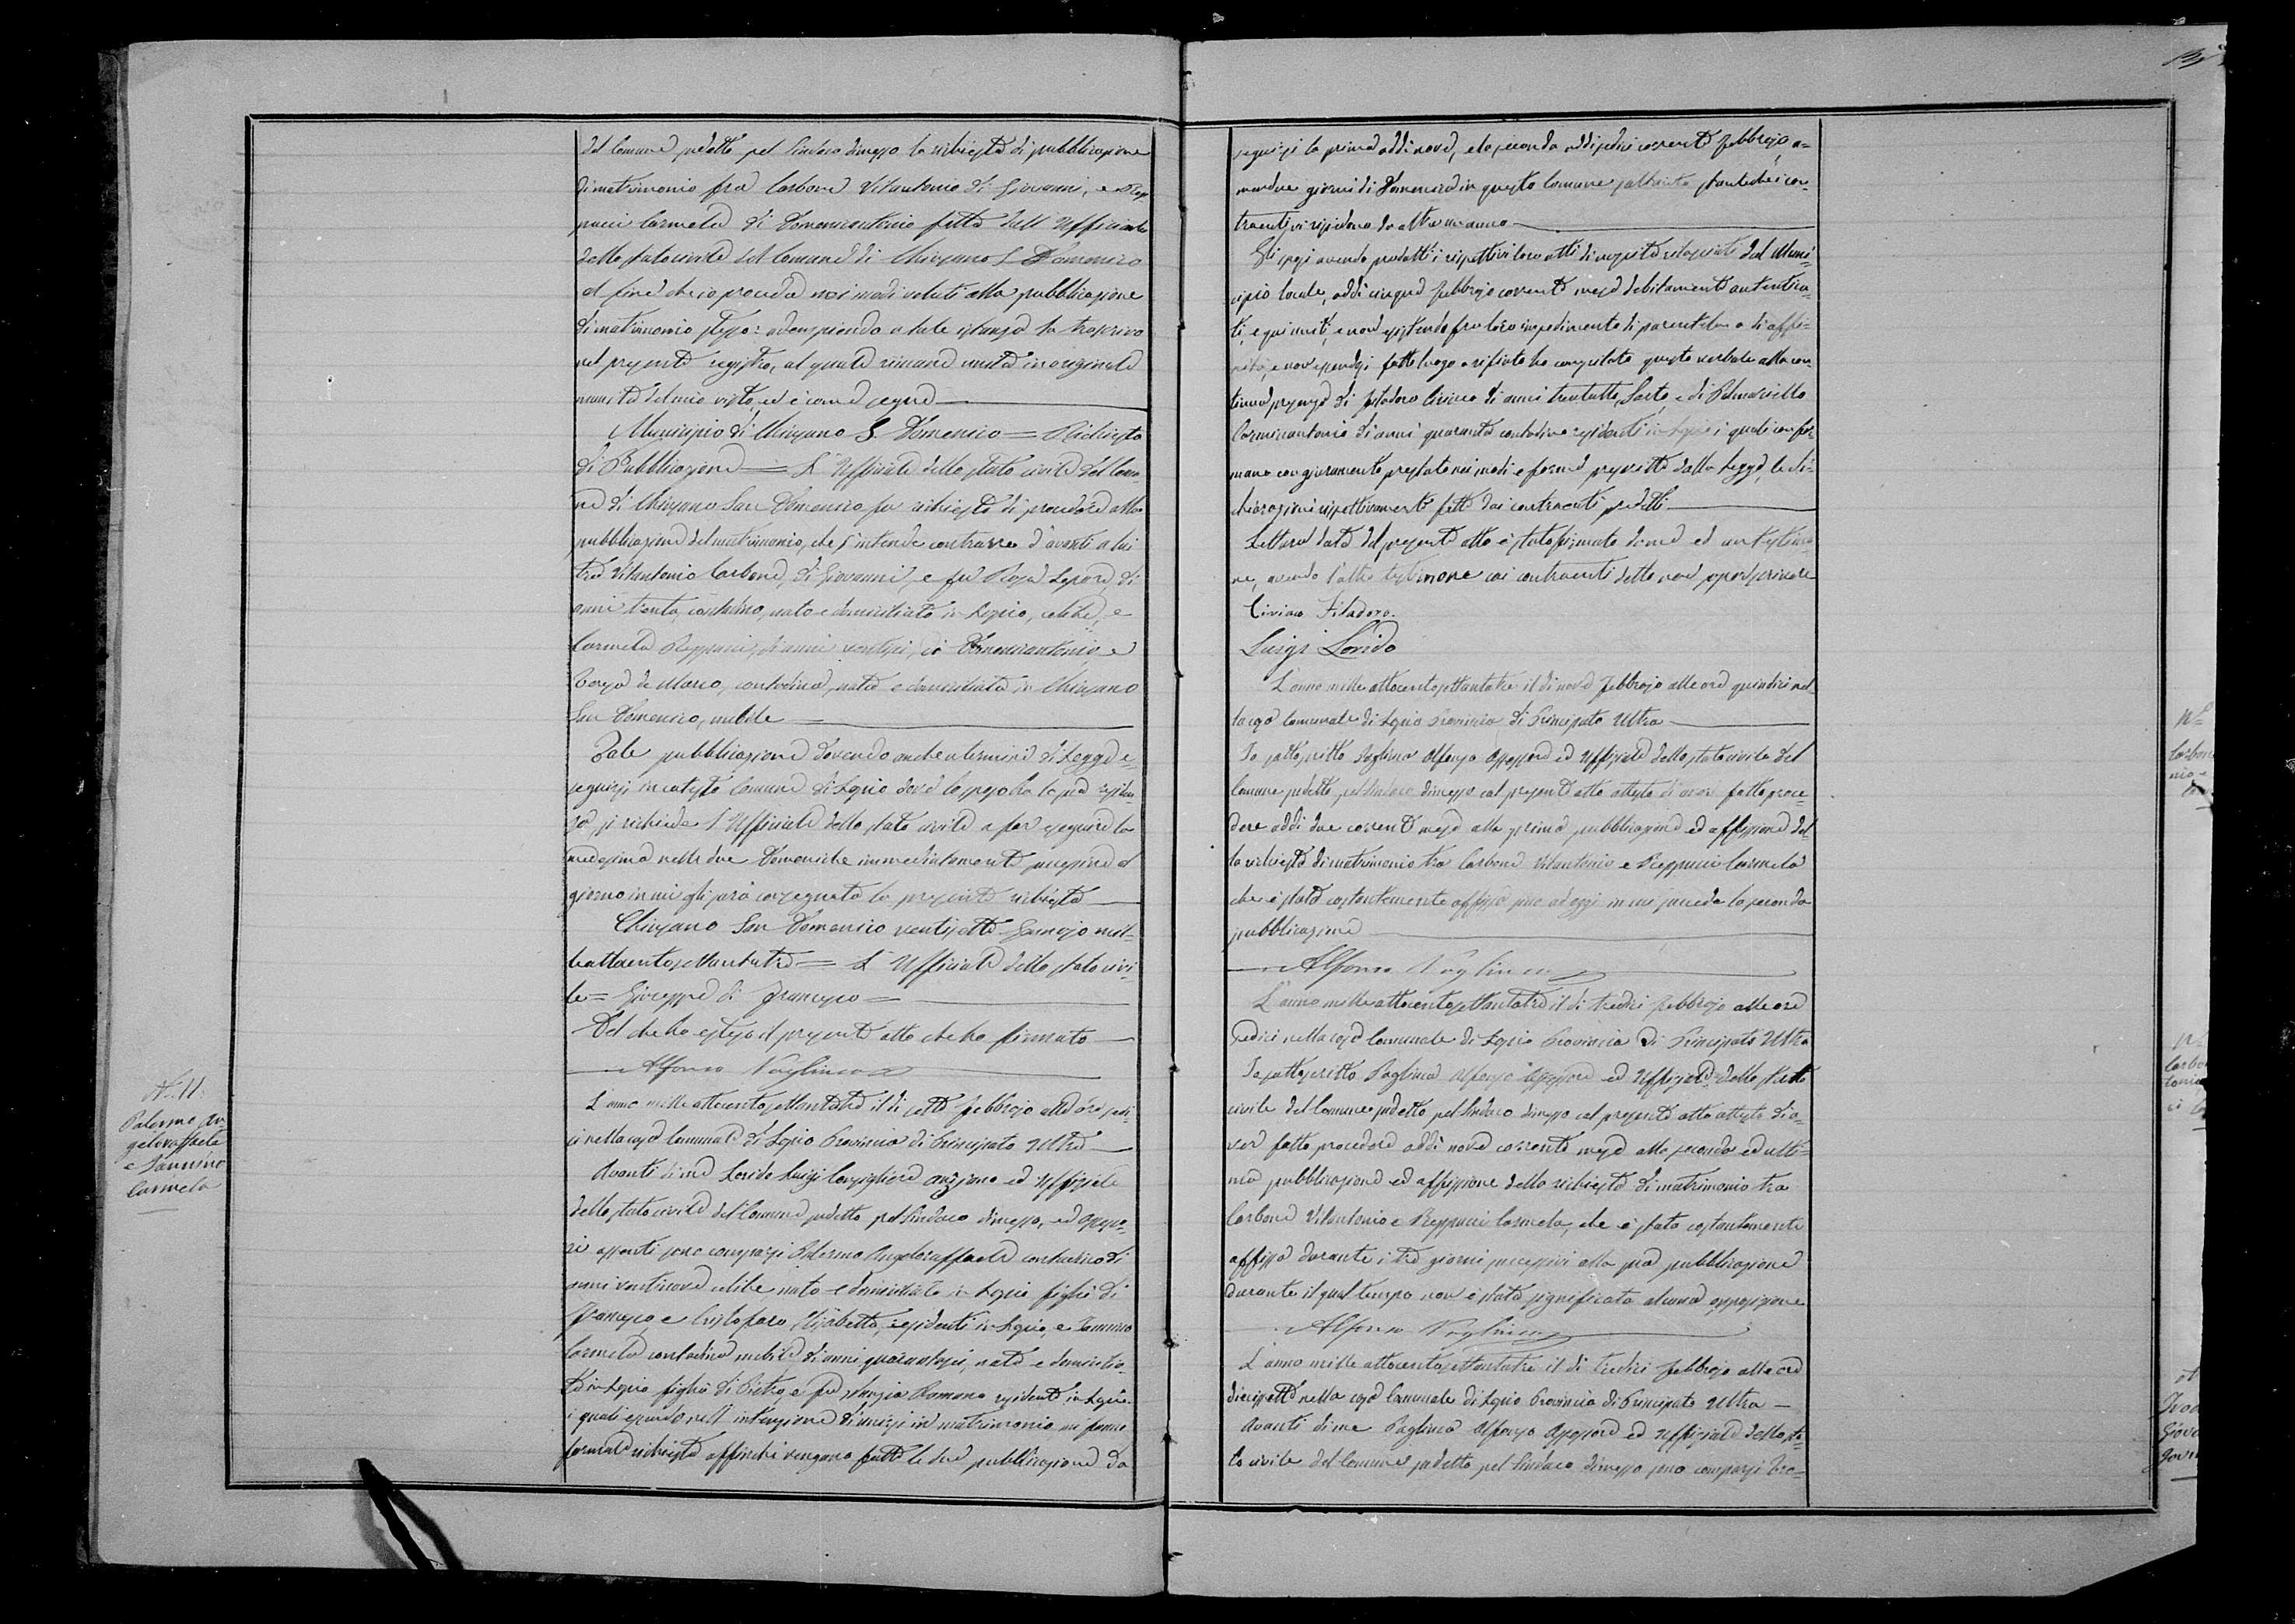 del Comune sudetto pel Sindaco dimesso la richiesta di pubblicazione
di matrimonio fra Carbone Vitantonio di Giovanni, e
Carmela di Domenicantonio fatta dall'Uffiziale
dello stato civile del Comune di Chiusano S. Domenico
al fine che io proceda nei modi voluti alla pubblicazione
di matrimonio stesso: adempiendo a tale istanza la trascrivo
nel presente registro, al quale rimane unita in originale
munita del mio visto, ed è come segue
Municipio di Chiusano S. Domenico = Richiesta
di Pubblicazione = L'Uffiziale dello stato civile del Comu-
ne di Chiusano San Domenico fa richiesta di procedere alla
pubblicazione del matrimonio, che s'intende contrarre d'avanti a lui
tra Vitantonio Carbone, di Giovanni, e fu Rosa Lepore, di
anni trenta, contadino, nato e domiciliato in Lapio, celibe, e
Carmela Reppucci, di anni ventisei, di Domenicantonio, e
Teresa de Marco, contadina, nata e domiciliata in Chiusano
San Domenico, nubile
Tale pubblicazione dovendo anche a termini di Legge e-
seguirsi in cotesto Comune di Lapio dove lo sposo ha la sua residen-
za si richiede l'Uffiziale dello stato civile a far eseguire la
medesima nelle due Domeniche immediatamente successive al
giorno in cui gli sarà consegnata la presente richiesta
Chiusano San Domenico ventisette Gennajo mil-
leottocentosettantatre = L'Uffiziale dello stato civi-
le = Giuseppe di Francesco =
Del che ho esteso il presente atto che ho firmato
Alfonso
N. 11.
Palermo An
geloraffaele
e Iannino
Carmela
L'anno mille ottocentosettantatre il di sette Febbrajo alle ore sedi-
ci nella casa Comunale di Lapio Provincia di Principato Ultra
Avanti di me Lorido Luigi Consigliere anziano ed Uffiziale
dello stato civile del Comune sudetto pel Sindaco dimesso, ed Assesso-
ri assenti sono comparsi Palermo Angeloraffaele contadino di
anni ventinove celibe nato e domiciliato in Lapio figlio di
Francesco e Cristofaro Elisabetta, residenti in Lapio, e Iannino
Carmela contadina nubile di anni quarantasei, nata e domicilia-
ta in Lapio figlia di Pietro, e fu Romano residente in Lapio
i quali essendo nell'intenzione di unirsi in matrimonio mi fanno
formale richiesta affinchè vengano fatte le due pubblicazione da
eseguirsi la prima addì nove, e la seconda addì sedici corrente Febbrajo, a-
mendue giorni di Domenica in questo Comune soltanto stantechè i con-
traenti vi risiedono da oltre un anno
Gli sposi avendo prodotti i rispettivi loro atti di nascita rilasciati dal Muni-
cipio locale, addì cinque Febbrajo corrente mese debitamente autentica-
ti, e qui uniti, e non esistendo fra loro impedimento di parentela o di affi-
nità, e non essendosi fatto luogo a rifiuto ho compilato questo verbale alla con-
tinua presenza di Filadoro Civino di anni trentotto, Sarto, e di Palmariello
Carminantonio di anni quaranta contadino residenti in Lapio i quali confer-
mano con giuramento prestato nei modi e forme prescritte dalla Legge, le di-
chiarazioni rispettivamente fatte dai contraenti sudetti
Lettura data del presente atto è stato firmato da me ed un testimo-
ne, avendo l'altro testimone coi contraenti detto non saper scrivere
Civino Filadoro
Luigi Lorido
L'anno mille ottocentosettantatre il di nove Febbrajo alle ore quindici nel
la casa Comunale di Lapio Provincia di Principato Ultra
Io sottoscritto Alfonso Assessore ed Uffiziale dello stato civile del
Comune sudetto pel Sindaco dimesso col presente atto attesto di aver fatto proce-
dere addì due corrente mese alla prima pubblicazione ed affissione del-
la richiesta di matrimonio tra Carbone Vitantonio e Reppucci Carmela
che è stata costantemente affissa sino ad oggi in cui succede la seconda
pubblicazione
Alfonso
L'anno mille ottocentosettantatre il di tredici Febbrajo alle ore
sedici nella casa Comunale di Lapio Provincia di Principato Ultra
Io sottoscritto Alfonso Assessore ed Uffiziale dello stato
civile del Comune sudetto pel Sindaco dimesso col presente atto attesto di a-
ver fatto procedere addì nove corrente mese alla seconda ed ulti-
ma pubblicazione ed affissione della richiesta di matrimonio tra
Carbone Vitantonio e Reppucci Carmela, che è stata costantemente
affissa durante i tre giorni successivi alla sua pubblicazione
durante il qual tempo non è stata significata alcuna opposizione
Alfonso
L'anno mille ottocentosettantatre il di tredici Febbrajo alle ore
diciasette nella casa Comunale di Lapio Provincia di Principato Ultra
Avanti di me Alfonso Assessore ed Uffiziale dello sta-
to civile del Comune sudetto pel Sindaco dimesso sono comparsi